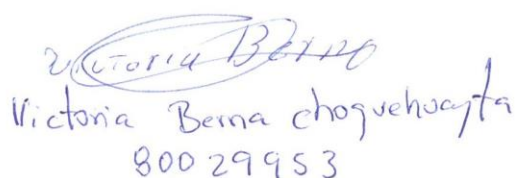 Victoria Berna
Victoria Berna choquehuayta
80029953